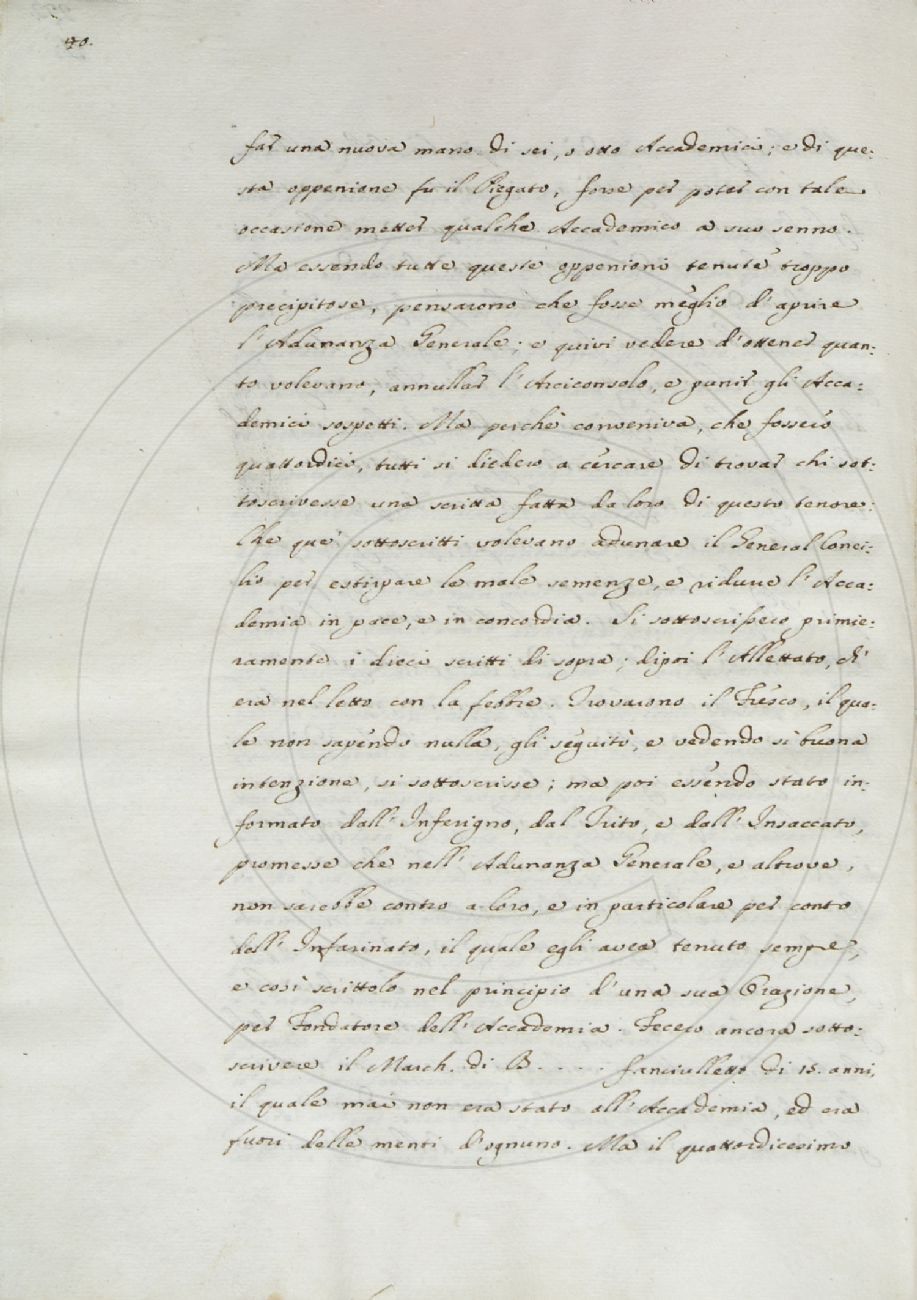 40.
far una nuova mano di sei, o otto Accademici; e di que:
sta oppenione fu il Piegato, forse per poter con tale
occasione metter qualche Accademico a suo senno.
Ma essendo tutte queste oppenioni tenute troppo
precipitose, pensarono che fosse meglio d'aprire
l'Adunanza Generale; e quivi vedere d'ottener quan:
to volevano, annullar l'Arciconsolo, e punir gli Acca:
demici sospetti. Ma perchè conveniva, che fossero
quattordici, tutti si diedero a cercare di trovar chi sot:
toscrivesse una scritta fatta da loro di questo tenore:
Che que' sottoscritti volevano adunare il General Conci:
lio per estirpare le male semenze, e ridurre l'Acca:
demia in pace, e in concordia. Si sottoscrissero primie:
ramente i dieci scritti di sopra; dipoi l'Allettato, ch'
era nel letto con la febbre. Trovarono il Fresco, il qua:
le non sapendo nulla, gli seguitò, e vedendo sì buona
intenzione, si sottoscrisse; ma poi essendo stato in:
formato dall'Inferigno, dal Trito, e dall'Insaccato,
promesse che nell'Adunanza Generale, e altrove,
non sarebbe contro a loro, e in particolare per conto
dell'Infarinato, il quale egli avea tenuto sempre,
e così scrittolo nel principio d'una sua Orazione,
per Fondatore dell'Accademia. Fecero ancora sotto:
scrivere il March. di B . . . . fanciulletto di 15. anni,
il quale mai non era stato all'Accademia, ed era
fuori delle menti d'ognuno. Ma il quattordicesimo